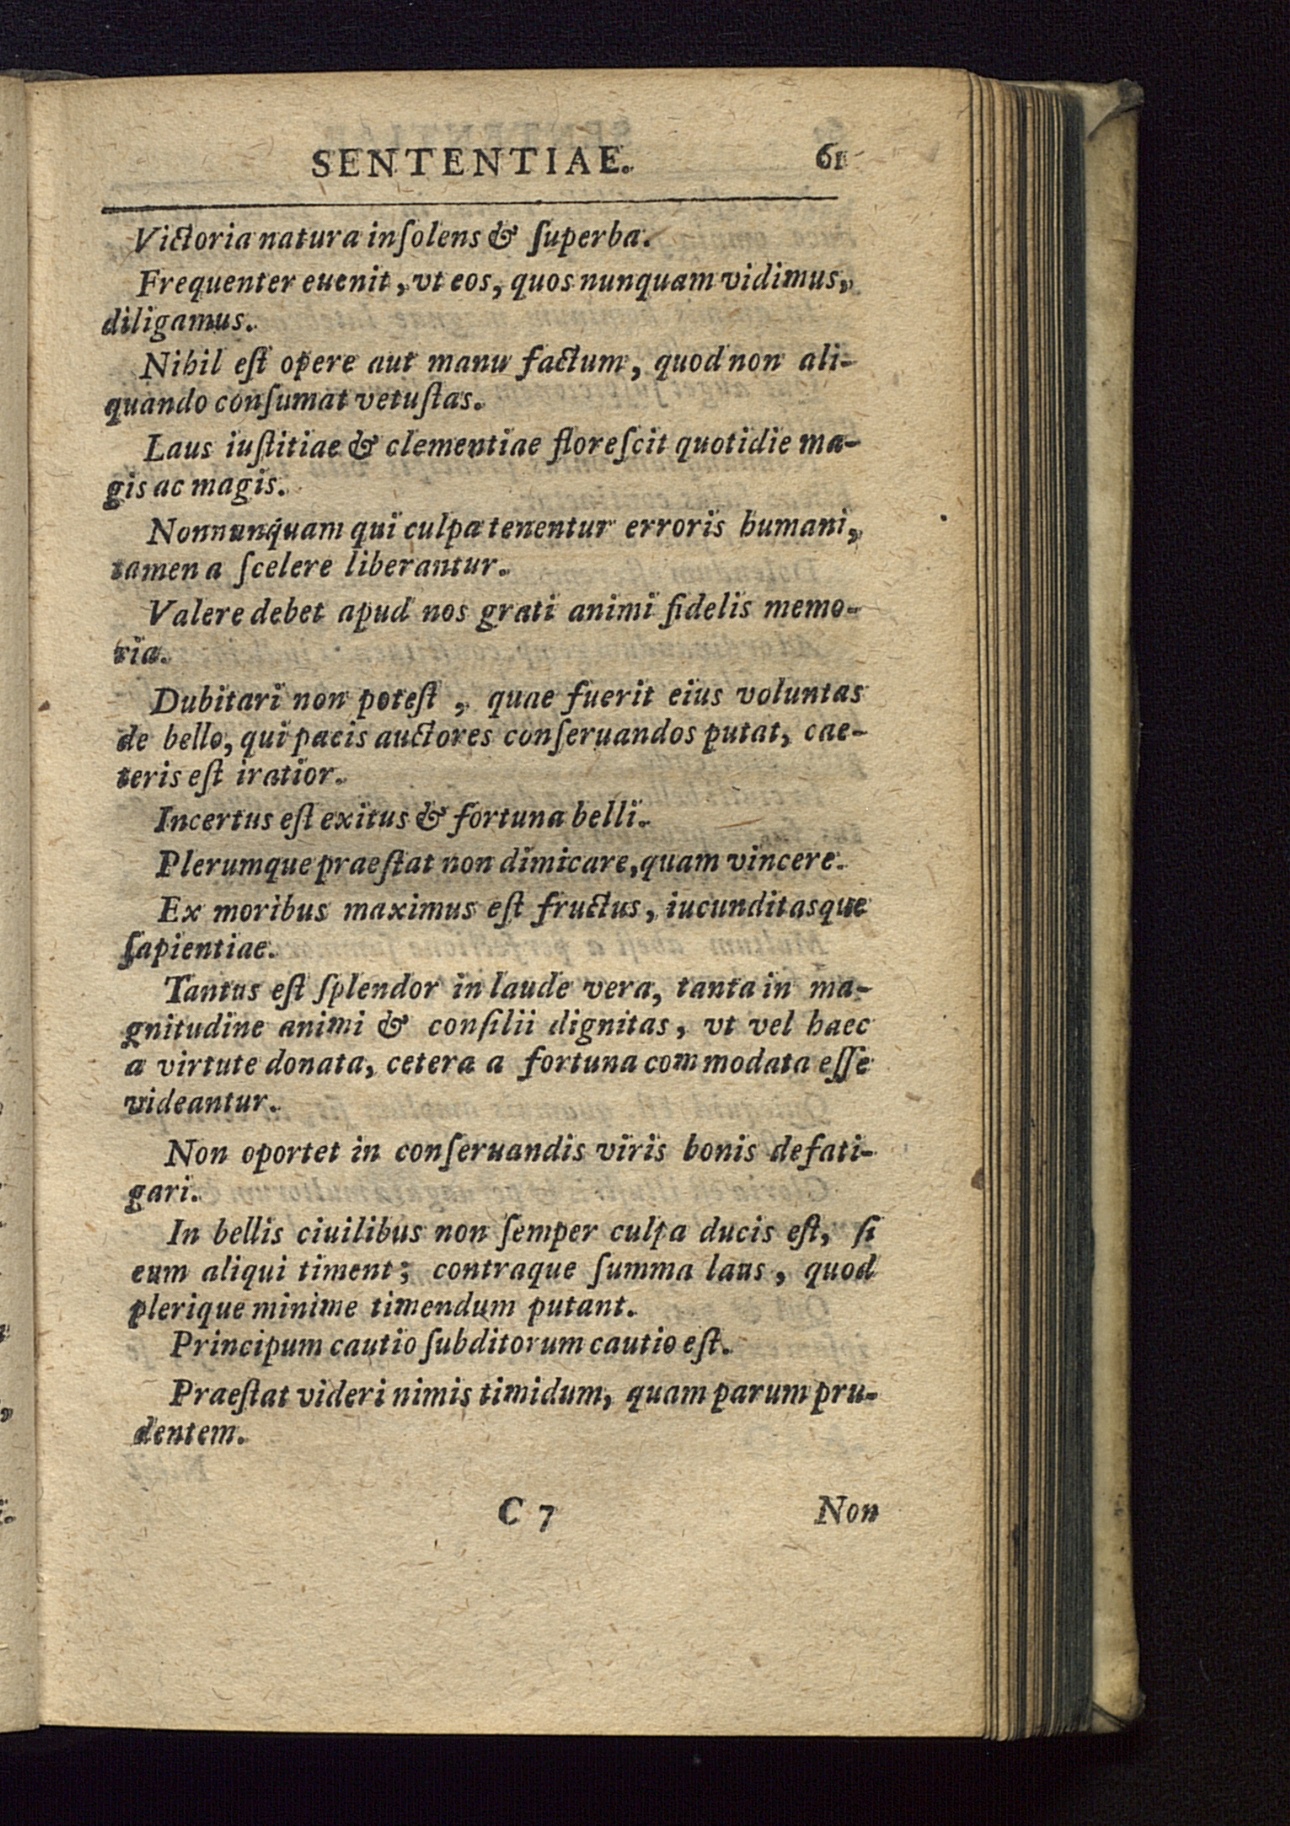 SENTENTIAE. 61
Victoria natura inſolens & ſuperba.
Frequenter euenit, vt eos, quos nunquam vidimus,
diligamus.
Nihil eſt opere aut manu factum, quod non ali-
quando conſumat vetuſtas.
Laus iuſtitiae & clementiae floreſcit quotidie ma-
gis ac magis.
Nonnunquam qui culpa tenentur erroris humani,
tamen a ſcelere liberantur.
Valere debet apud nos grati animi fidelis memo-
ria.
Dubitari non poteſt, quae fuerit eius voluntas
de bello, qui pacis auctores conſeruandos putat, cae-
teris eſt iratior.
Incertus eſt exitus & fortuna belli.
Plerumque praeſtat non dimicare, quam vincere.
Ex moribus maximus eſt fructus, iucunditasque
ſapientiae.
Tantus eſt ſplendor in laude vera, tanta in ma-
gnitudine animi & conſilii dignitas, vt vel haec
a virtute donata, cetera a fortuna commodata eſſe
videantur.
Non oportet in conſeruandis viris bonis defati-
gari.
In bellis ciuilibus non ſemper culpa ducis eſt, ſi
eum aliqui timent; contraque ſumma laus, quod
plerique minime timendum putant.
Principum cautio ſubditorum cautio eſt.
Praeſtat videri nimis timidum, quam parum pru-
dentem.
C 7 Non